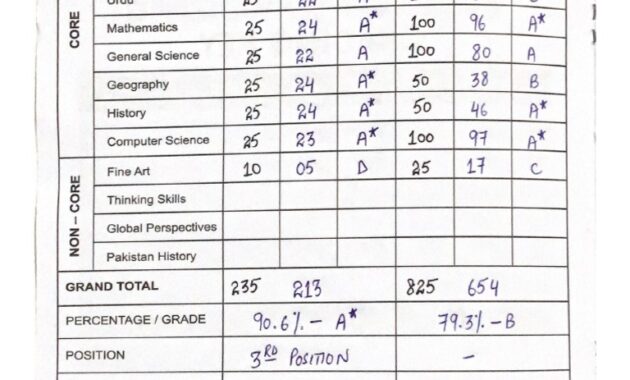 CORE
Urdu 25 22
Mathematics 25 24 A* 100 96 A*
General Science 25 22 A 100 80 A
Geography 25 24 A* 50 38 B
History 25 24 A* 50 46 A*
Computer Science 25 23 A* 100 97 A*
NON - CORE
Fine Art 10 05 D 25 17 C
Thinking Skills
Global Perspectives
Pakistan History
GRAND TOTAL 235 213 825 654
PERCENTAGE / GRADE 90.6% - A* 79.3% - B
POSITION 3RD POSITION -